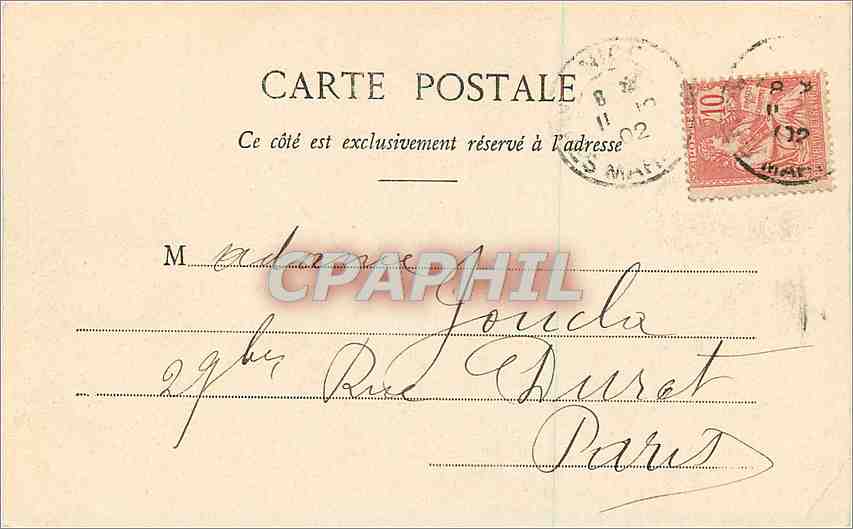 CARTE POSTALE
Ce côté est exclusivement réservé à l'adresse
10
8
11 5
02
S MAR
02
MAR
Madame
CPAPHIL
29 bis Rue Duret
Paris